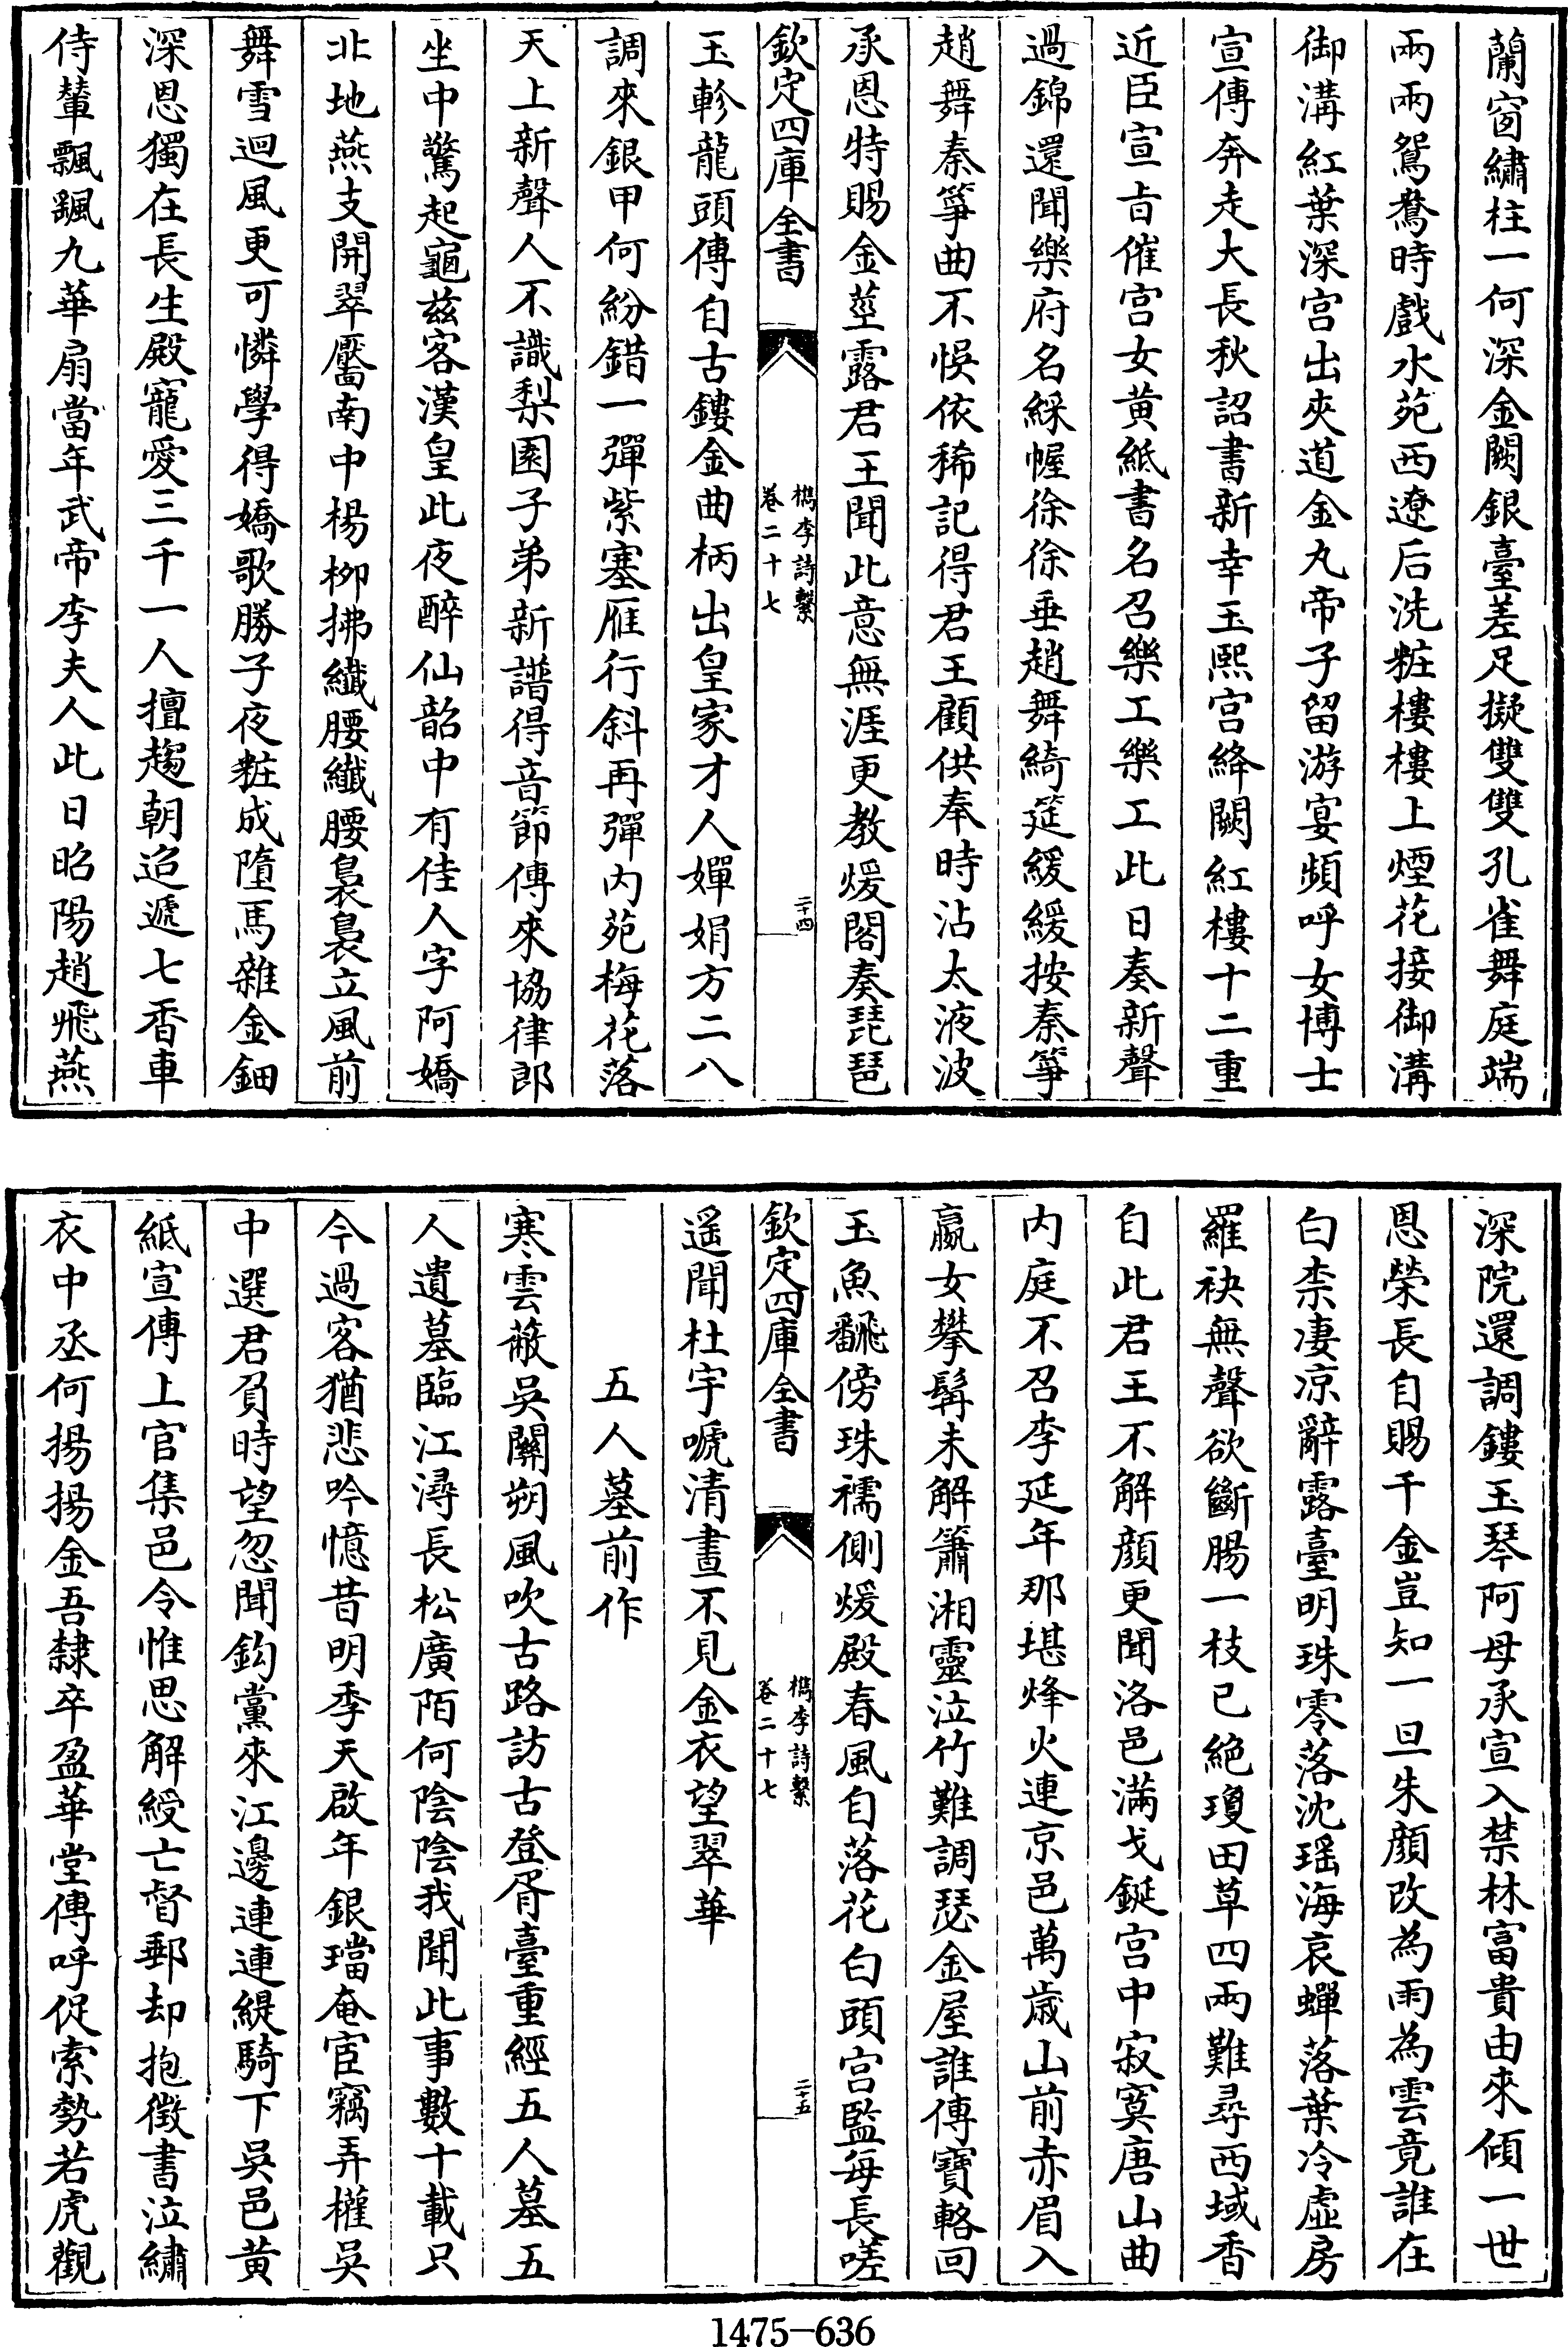 蘭窗繡柱一何深金闕銀臺差足擬雙雙孔雀舞庭端
兩兩鴛鴦時戲水苑西遼后洗粧樓樓上煙花接御溝
御溝紅葉深宫出夾道金丸帝子留游宴頻呼女博士
宣傳奔走大長秋詔書新幸玉熙宫絳闕紅樓十二重
近臣宣旨催宫女黄紙書名召樂工樂工此日奏新聲
過錦還聞樂府名綵幄徐徐垂趙舞綺筵緩緩按秦箏
趙舞秦箏曲不悞依稀記得君王顧供奉時沾太液波
承恩特賜金莖露君王聞此意無涯更教煖閣奏琵琶
欽定四庫全書
檇李詩繫
卷二十七
二十四
玉軫龍頭傳自古鏤金曲柄出皇家才人嬋娟方二八
調來銀甲何紛錯一彈紫塞雁行斜再彈内苑梅花落
天上新聲人不識梨園子弟新譜得音節傳來協律郎
坐中驚起龜茲客漢皇此夜醉仙韶中有佳人字阿嬌
北地燕支開翠靨南中楊柳拂纖腰纖腰裊裊立風前
舞雪迴風更可憐學得嬌歌勝子夜粧成墮馬雜金鈿
深恩獨在長生殿寵愛三千一人擅趨朝迢遞七香車
侍輦飄颻九華扇當年武帝李夫人此日昭陽趙飛燕
深院還調鏤玉琴阿母承宣入禁林富貴由來傾一世
恩榮長自賜千金豈知一旦朱顔改為雨為雲竟誰在
白柰凄凉辭露臺明珠零落沈瑶海哀蟬落葉冷虚房
羅袂無聲欲斷腸一枝已絶瓊田草四兩難尋西域香
自此君王不解顔更聞洛邑滿戈鋋宫中寂寞唐山曲
内庭不召李延年那堪烽火連京邑萬歲山前赤眉入
嬴女攀髯未解簫湘靈泣竹難調瑟金屋誰傳寶輅回
玉魚飜傍珠襦側煖殿春風自落花白頭宫監每長嗟
欽定四庫全書
檇李詩繫
卷二十七
二十五
遥聞杜宇嗁清晝不見金衣望翠華
五人墓前作
寒雲蔽吳關朔風吹古路訪古登胥臺重經五人墓五
人遺墓臨江潯長松廣陌何陰陰我聞此事數十載只
今過客猶悲吟憶昔明季天啟年銀璫奄宦竊弄權吳
中選君負時望忽聞鈎黨來江邊連連緹騎下吳邑黄
紙宣傳上官集邑令惟思解綬亡督郵却抱徵書泣繡
衣中丞何揚揚金吾隸卒盈華堂傳呼促索勢若虎觀
1475-636